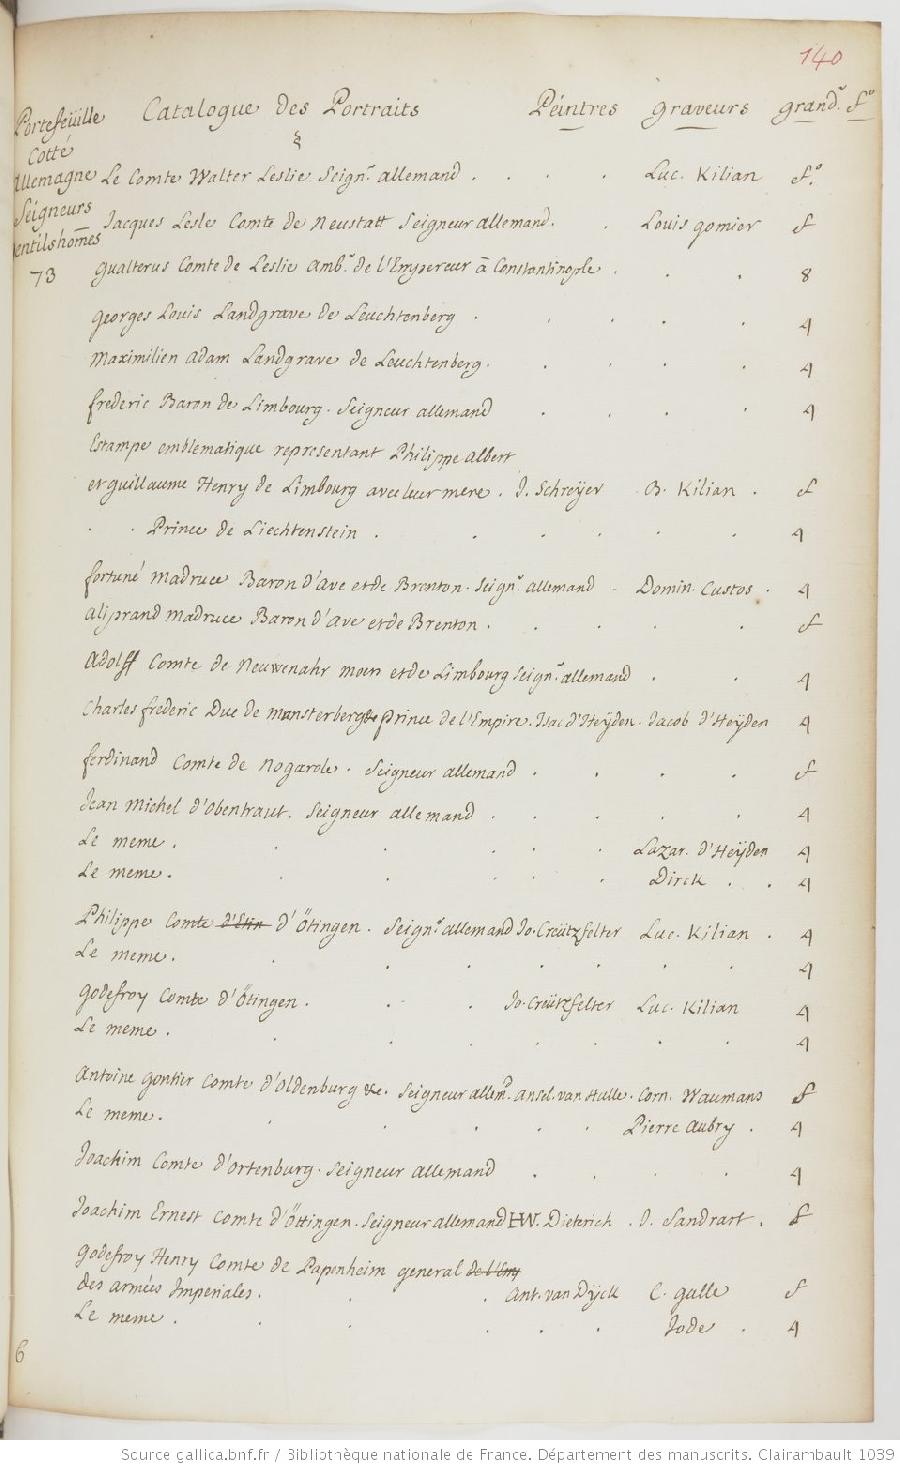 140
Portefeüille Catalogue des Portraits Peintres graveurs grand.r f.o
Cotté
Allemagne Le Comte Walter Leslie Seign.r allemand . . . . Luc. Kilian f.o
Seigneurs
Jacques Lesle Comte de Neustatt Seigneur allemand. . Louis gomier f
gentilshom̄es
73 gualterus Comte de Leslie Amb.r de l'Empereur à Constantinople . . . 8
georges Louis Landgrave de Leuchtenberg . . . . . 4
Maximilien Adam Landgrave de Leuchtenberg. . . . . 4
frederic Baron de Limbourg. Seigneur allemand . . . . 4
Estampe emblematique representant Philippe albert
et guillaume Henry de Limbourg avec leur mere. J. Schreÿer . B. Kilian . f
. . Prince de Liechtenstein . . . . . . 4
fortuné Madruce Baron d'Ave et de Brenton. Seign.r allemand . Domin. Custos . 4
Aliprand Madruce Baron d'Ave et de Brenton . . . . f
Adolff Comte de Neuwenahr moers et de Limbourg Seign.r allemand . . 4
Charles frederic Duc de Monsterberg &c prince de l'Empire. Isac d'Heÿden. Jacob d'Heÿden 4
ferdinand Comte de Nogarole. Seigneur allemand . . . . f
Jean Michel d'Obentraut. Seigneur allemand . . . . . 4
Le meme . . . . . . Lazar. d'Heÿden 4
Le meme. . . . . . Dirck . . 4
Philippe Comte d'Etin d'Ötingen. Seign.r allemand Jo. Creützfelter Luc. Kilian . 4
Le meme. . . . . . . . 4
godefroy Comte d'Ötingen . . . Jo. Creützfelter Luc. Kilian 4
Le meme . . . . . . . 4
Antoine gontier Comte d'Oldenburg &c. Seigneur allem.d Ansel. van Hulle. Corn. Waumans f
Le meme. . . . . . Pierre Aubry . 4
Joachim Comte d'Ortenburg. Seigneur allemand . . . . 4
Joachim Ernest Comte d'Öttingen. Seigneur allemand H.W. Dieterich . J. Sandrart . f
godefroy Henry Comte de Papenheim general de l'Emp
des armées Imperiales. . . . Ant. van Dÿck C. galle f
Le meme . . . . . . Jode . 4
6
Source gallica.bnf.fr / Bibliothèque nationale de France. Département des manuscrits. Clairambault 1039